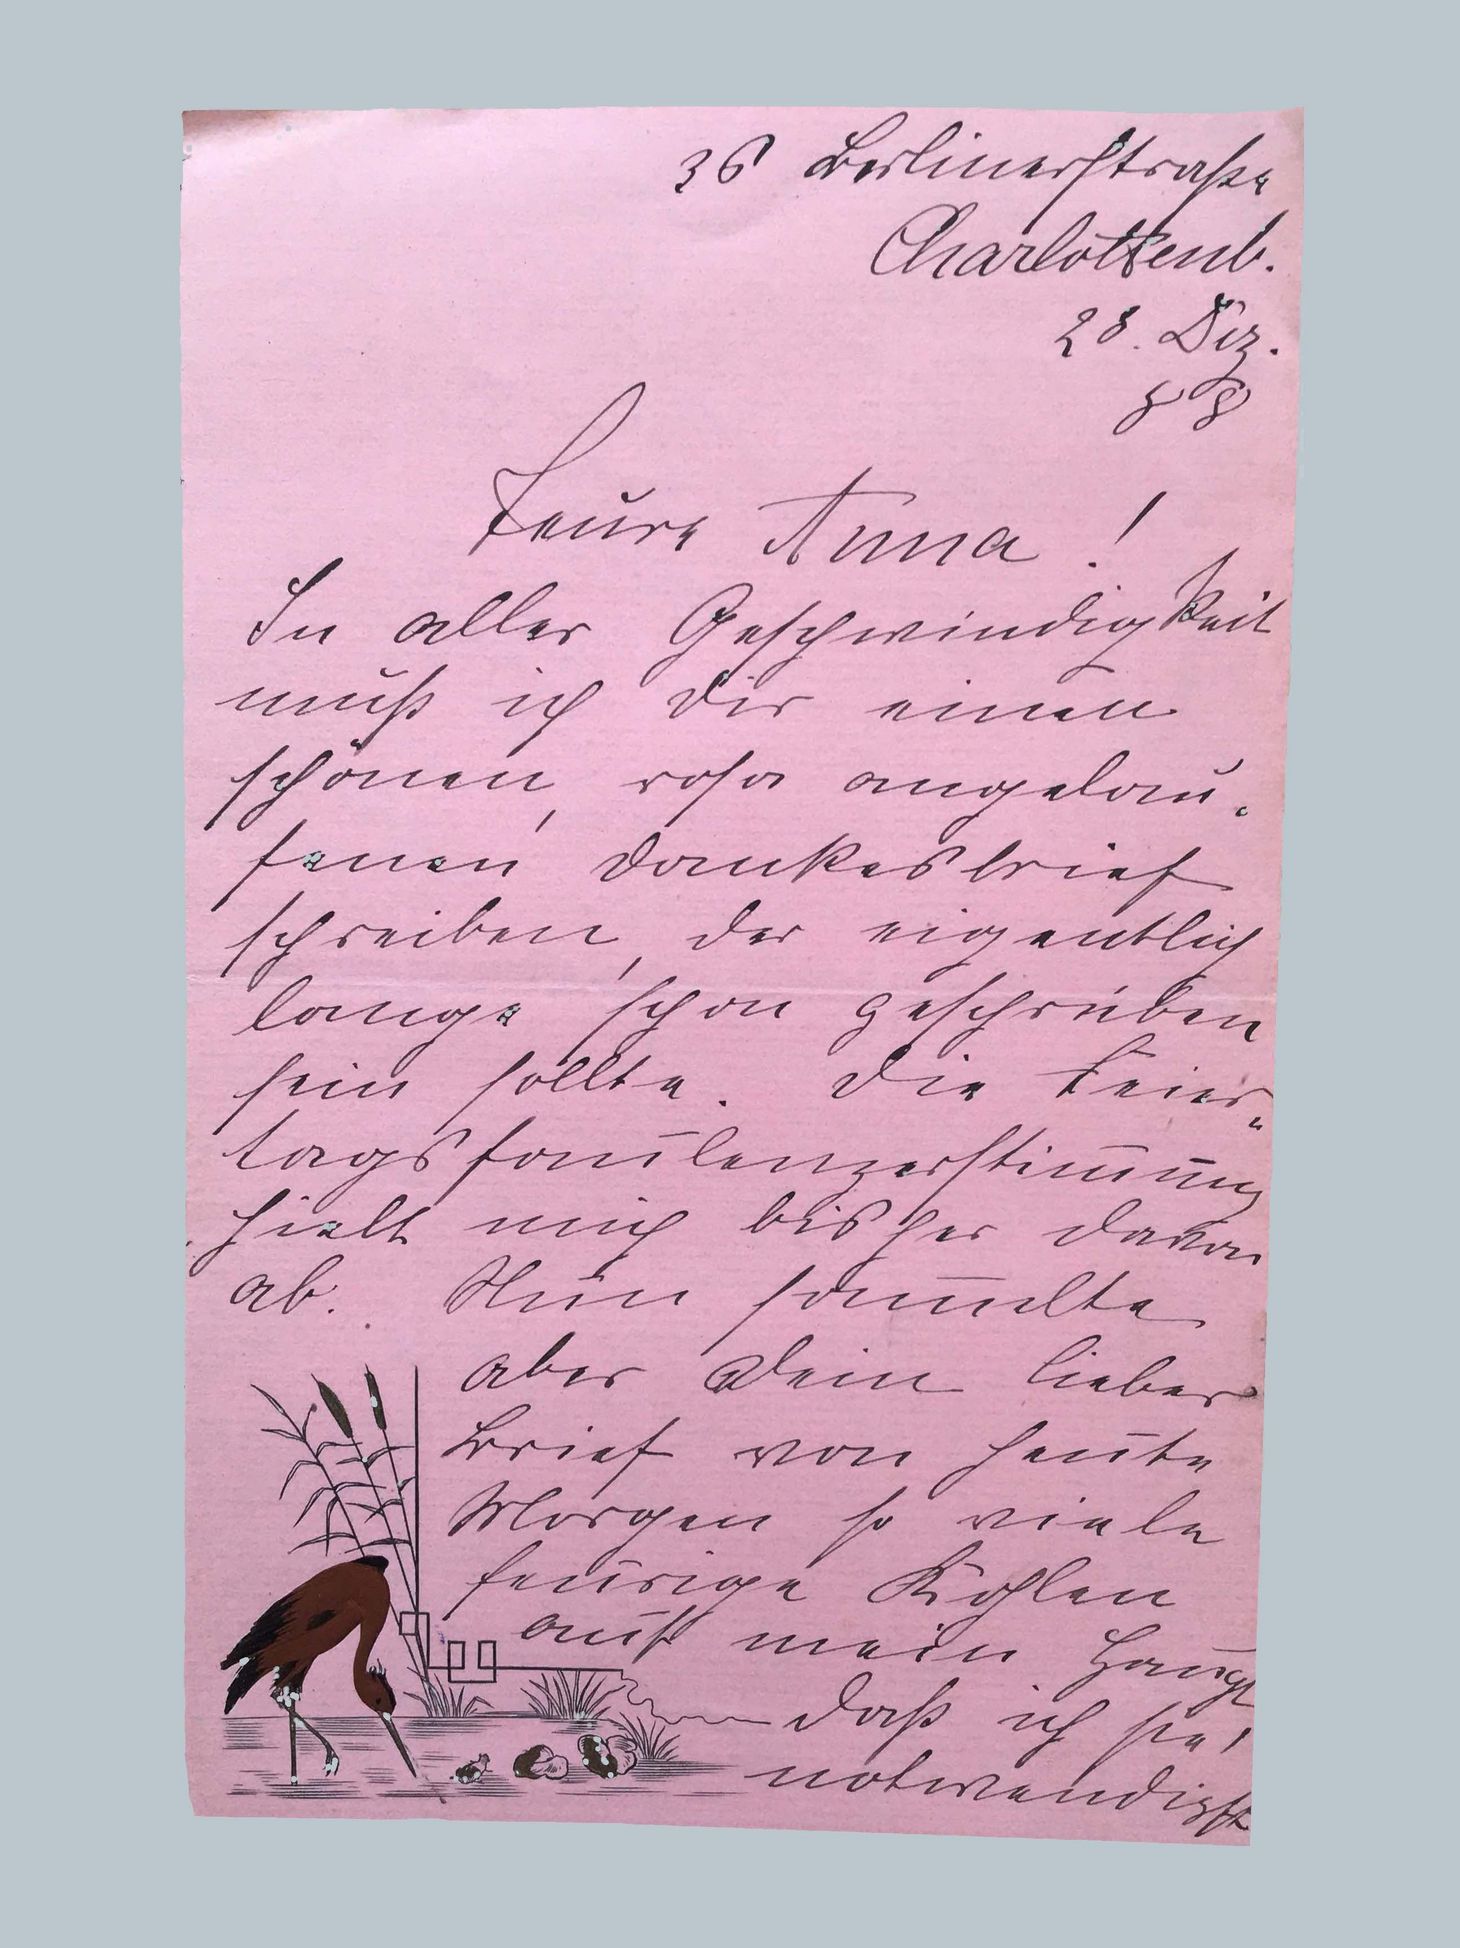 36 Berlinerstraße
Charlottenb.
28. Dez.
88
Teure Anna!
In aller Geschwindigkeit
muß ich dir einen
schönen, rosa angelau-
fenen Dankesbrief
schreiben, der eigentlich
lange schon geschrieben
sein sollte. Die Feier-
tagsfaulenzerstim̅ung
hielt mich bisher davon
ab. Nun sam̅elte
aber Dein lieber
Brief von heute
Morgen so viele
feurige Kohlen
auf mein Haupt
daß ich sie
notwendigst